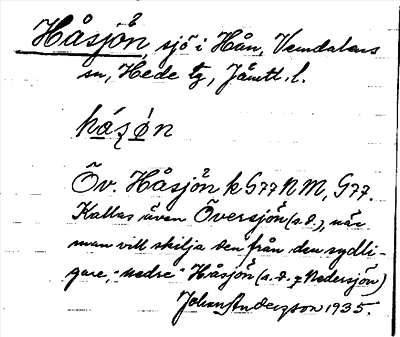 Håsjön, sjö i Hån, Vemdalens
sn, Hede tg, Jämtl. l.
hásøn
Öv. Håsjön k G77 NM, G77.
Kallas även Översjön (s.d.), när
man vill skilja den från den sydli-
gare, "nedre" Håsjön (s.d. Nedersjön)
Johan Anderzson 1935.